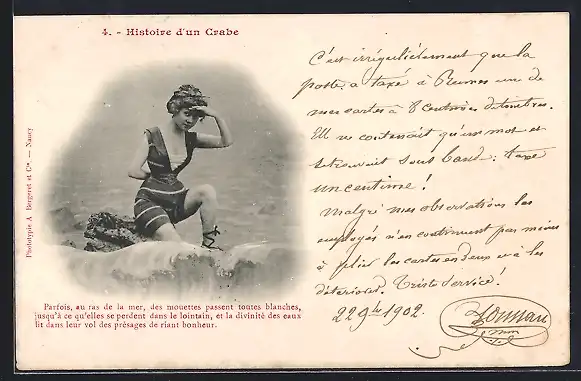 4. - Histoire d'un Crabe
C'est irrégulièrement que la
poste a taxé à Rennes une de
mes cartes à 8 centimes de timbres.
Elle ne contenait qu'un mot et
se trouvait sous bande: taxe
un centime!
Malgré mes observations les
employés n'en continuent pas moins
à plier les cartes en deux et à les
détériorer. Triste service!
22 9bre 1902.
Phototypie A. Bergeret et Cie. — Nancy
Parfois, au ras de la mer, des mouettes passent toutes blanches,
jusqu'à ce qu'elles se perdent dans le lointain, et la divinité des eaux
lit dans leur vol des présages de riant bonheur.